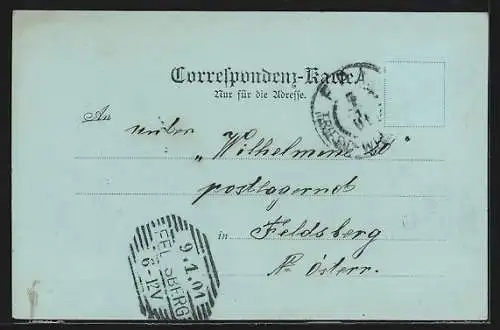 Correspondenz-Karte
Nur für die Adresse.
An unter
„Wilhelmine 80"
postlagernd
in Feldsberg
N. österr.
9.1.01
FELDSBERG
6-12V